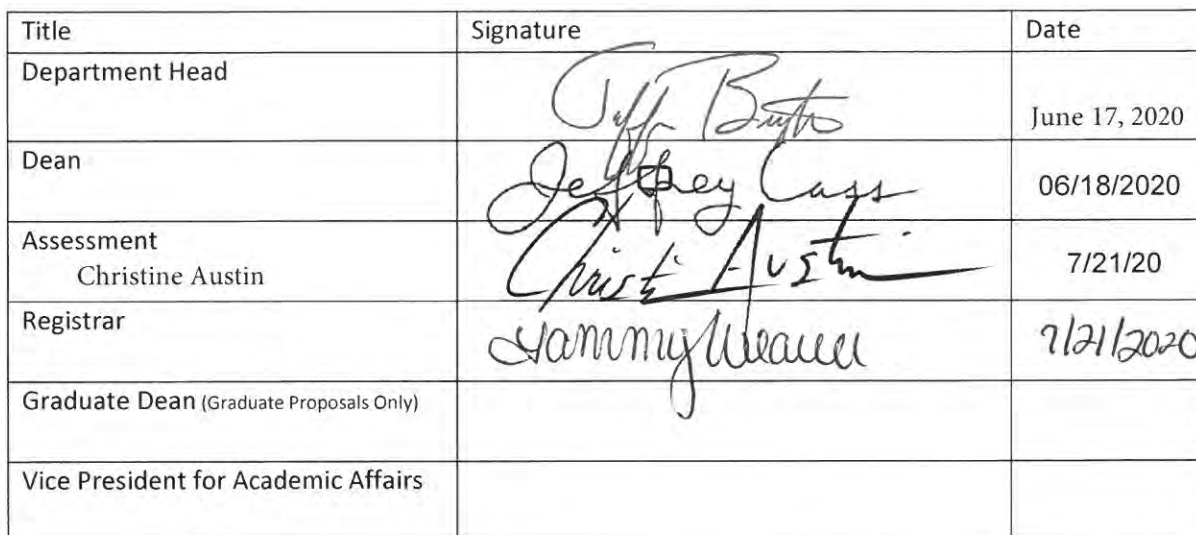 Title Signature Date
Department Head Jeff June 17, 2020
Dean Jeffrey Cass 06/18/2020
Assessment
Christine Austin Christi Austin 7/21/20
Registrar Tammy Weaver 7/21/2020
Graduate Dean (Graduate Proposals Only)
Vice President for Academic Affairs